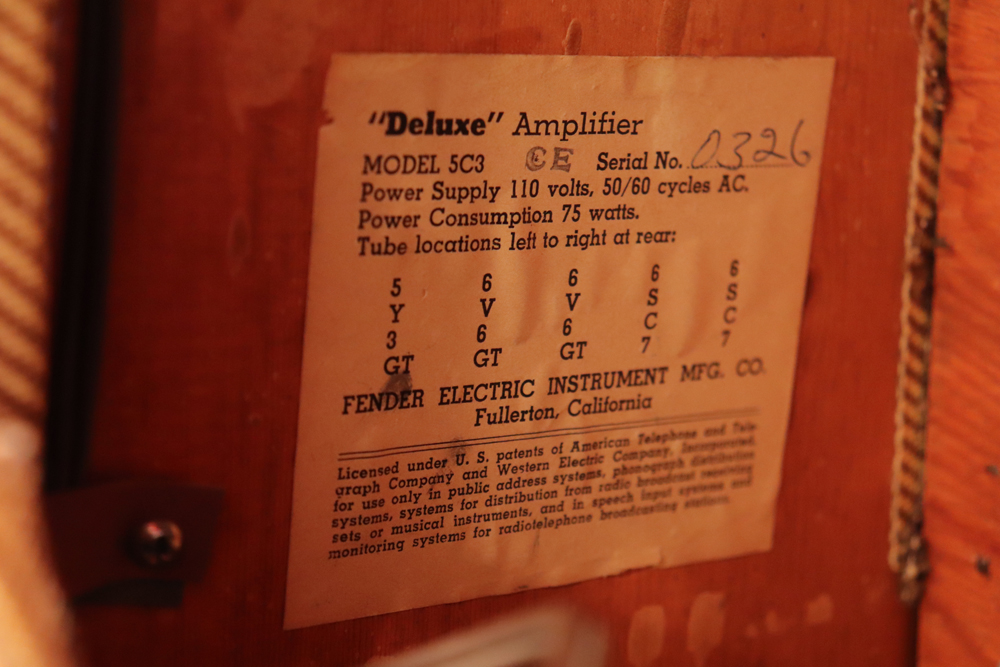 "Deluxe" Amplifier
MODEL 5C3 CE Serial No. 0326
Power Supply 110 volts, 50/60 cycles AC.
Power Consumption 75 watts.
Tube locations left to right at rear:
5 6 6 6 6
Y V V S S
3 6 6 C C
GT GT GT 7 7
FENDER ELECTRIC INSTRUMENT MFG. CO.
Fullerton, California
Licensed under U. S. patents of American Telephone and Tele-
graph Company and Western Electric Company, Incorporated,
for use only in public address systems, phonograph distribution
systems, systems for distribution from radio broadcast receiving
sets or musical instruments, and in speech input systems and
monitoring systems for radiotelephone broadcasting stations.